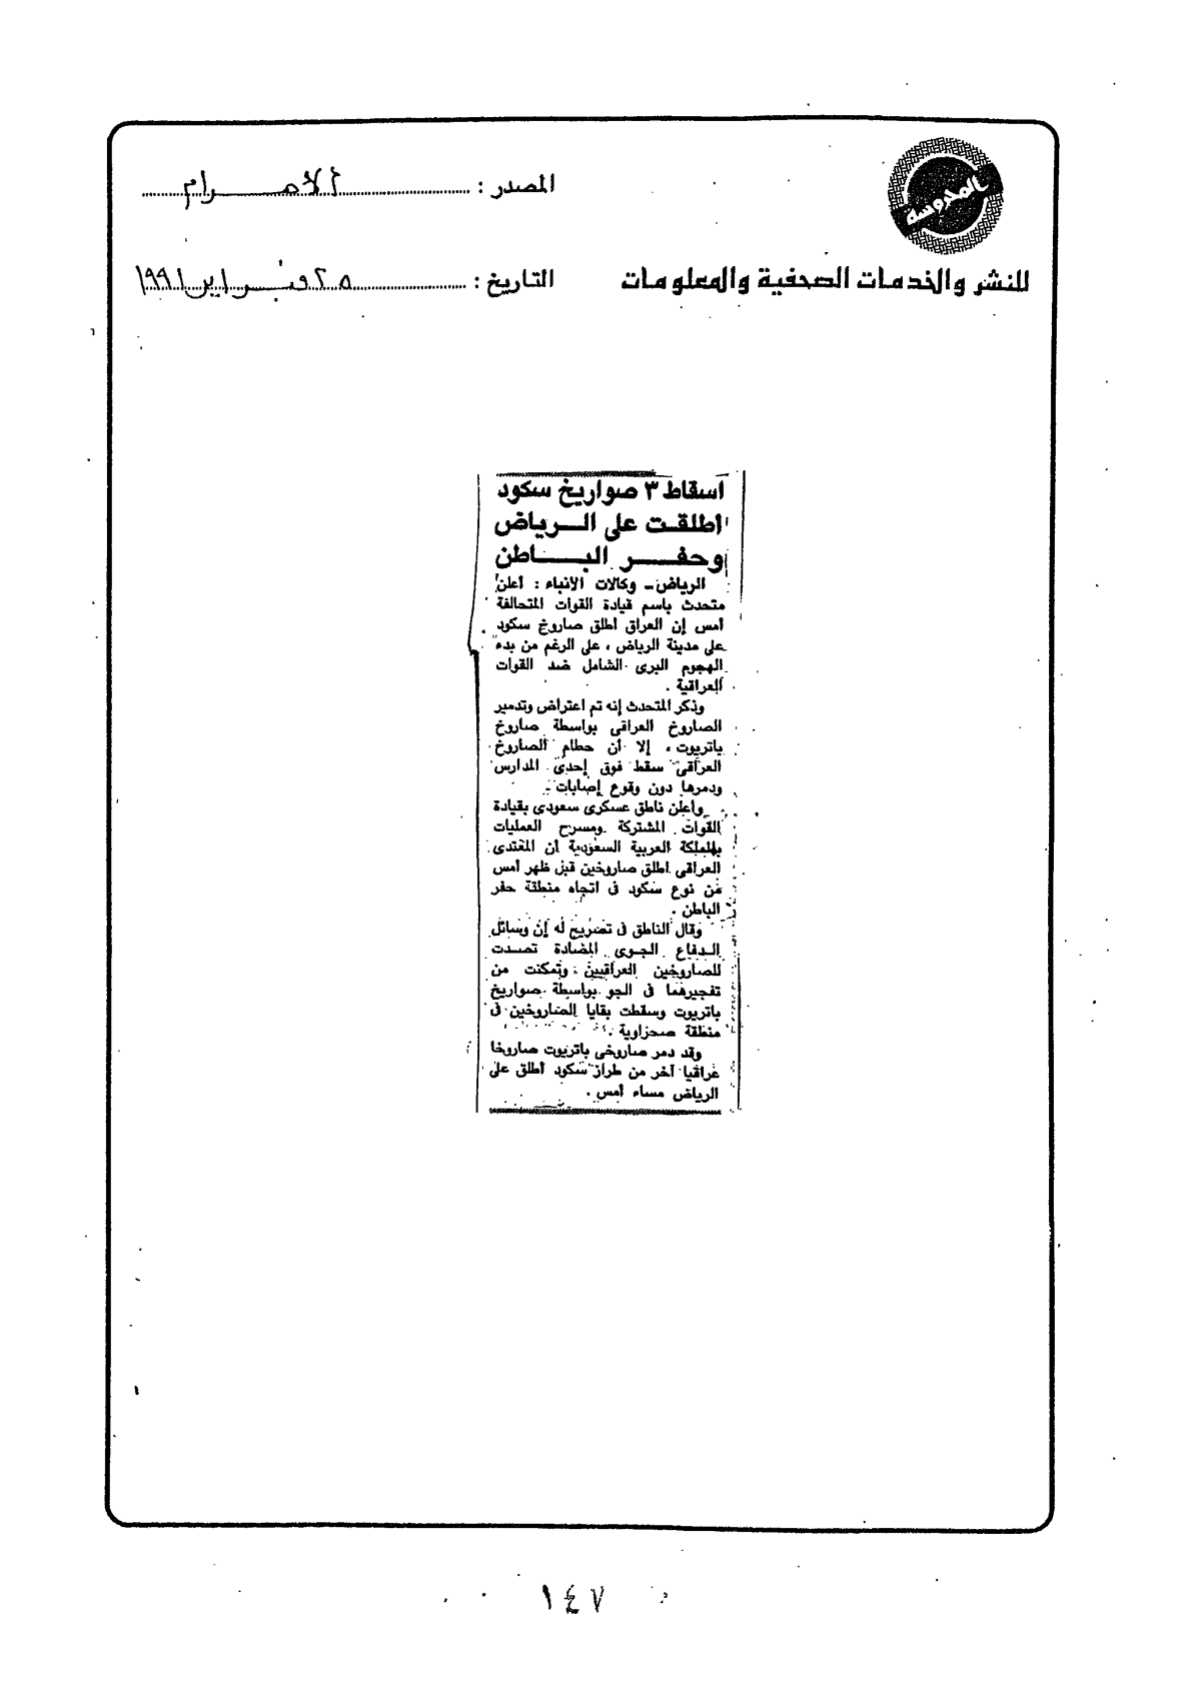 المحروسة
المصدر : الأهرام
للنشر والخدمات الصحفية والمعلومات
التاريخ : ٢٥ فبراير ١٩٩١
اسقاط ٣ صواريخ سكود
أطلقت على الرياض
وحفر الباطن
الرياض - وكالات الأنباء : أعلن
متحدث باسم قيادة القوات المتحالفة
أمس إن العراق اطلق صاروخ سكود
على مدينة الرياض ، على الرغم من بدء
الهجوم البرى الشامل ضد القوات
العراقية .
وذكر المتحدث إنه تم اعتراض وتدمير
الصاروخ العراقى بواسطة صاروخ
باتريوت ، إلا أن حطام الصاروخ
العراقى سقط فوق إحدى المدارس
ودمرها دون وقوع إصابات .
وأعلن ناطق عسكرى سعودى بقيادة
القوات المشتركة ومسرح العمليات
بالمملكة العربية السعودية أن المعتدى
العراقى اطلق صاروخين قبل ظهر أمس
من نوع سكود فى اتجاه منطقة حفر
الباطن .
وقال الناطق فى تصريح له إن وسائل
الدفاع الجوى المضادة تصدت
للصاروخين العراقيين ، وتمكنت من
تفجيرهما فى الجو بواسطة صواريخ
باتريوت وسقطت بقايا الصاروخين فى
منطقة صحراوية .
وقد دمر صاروخى باتريوت صاروخا
عراقيا آخر من طراز سكود أطلق على
الرياض مساء أمس .
١٤٧